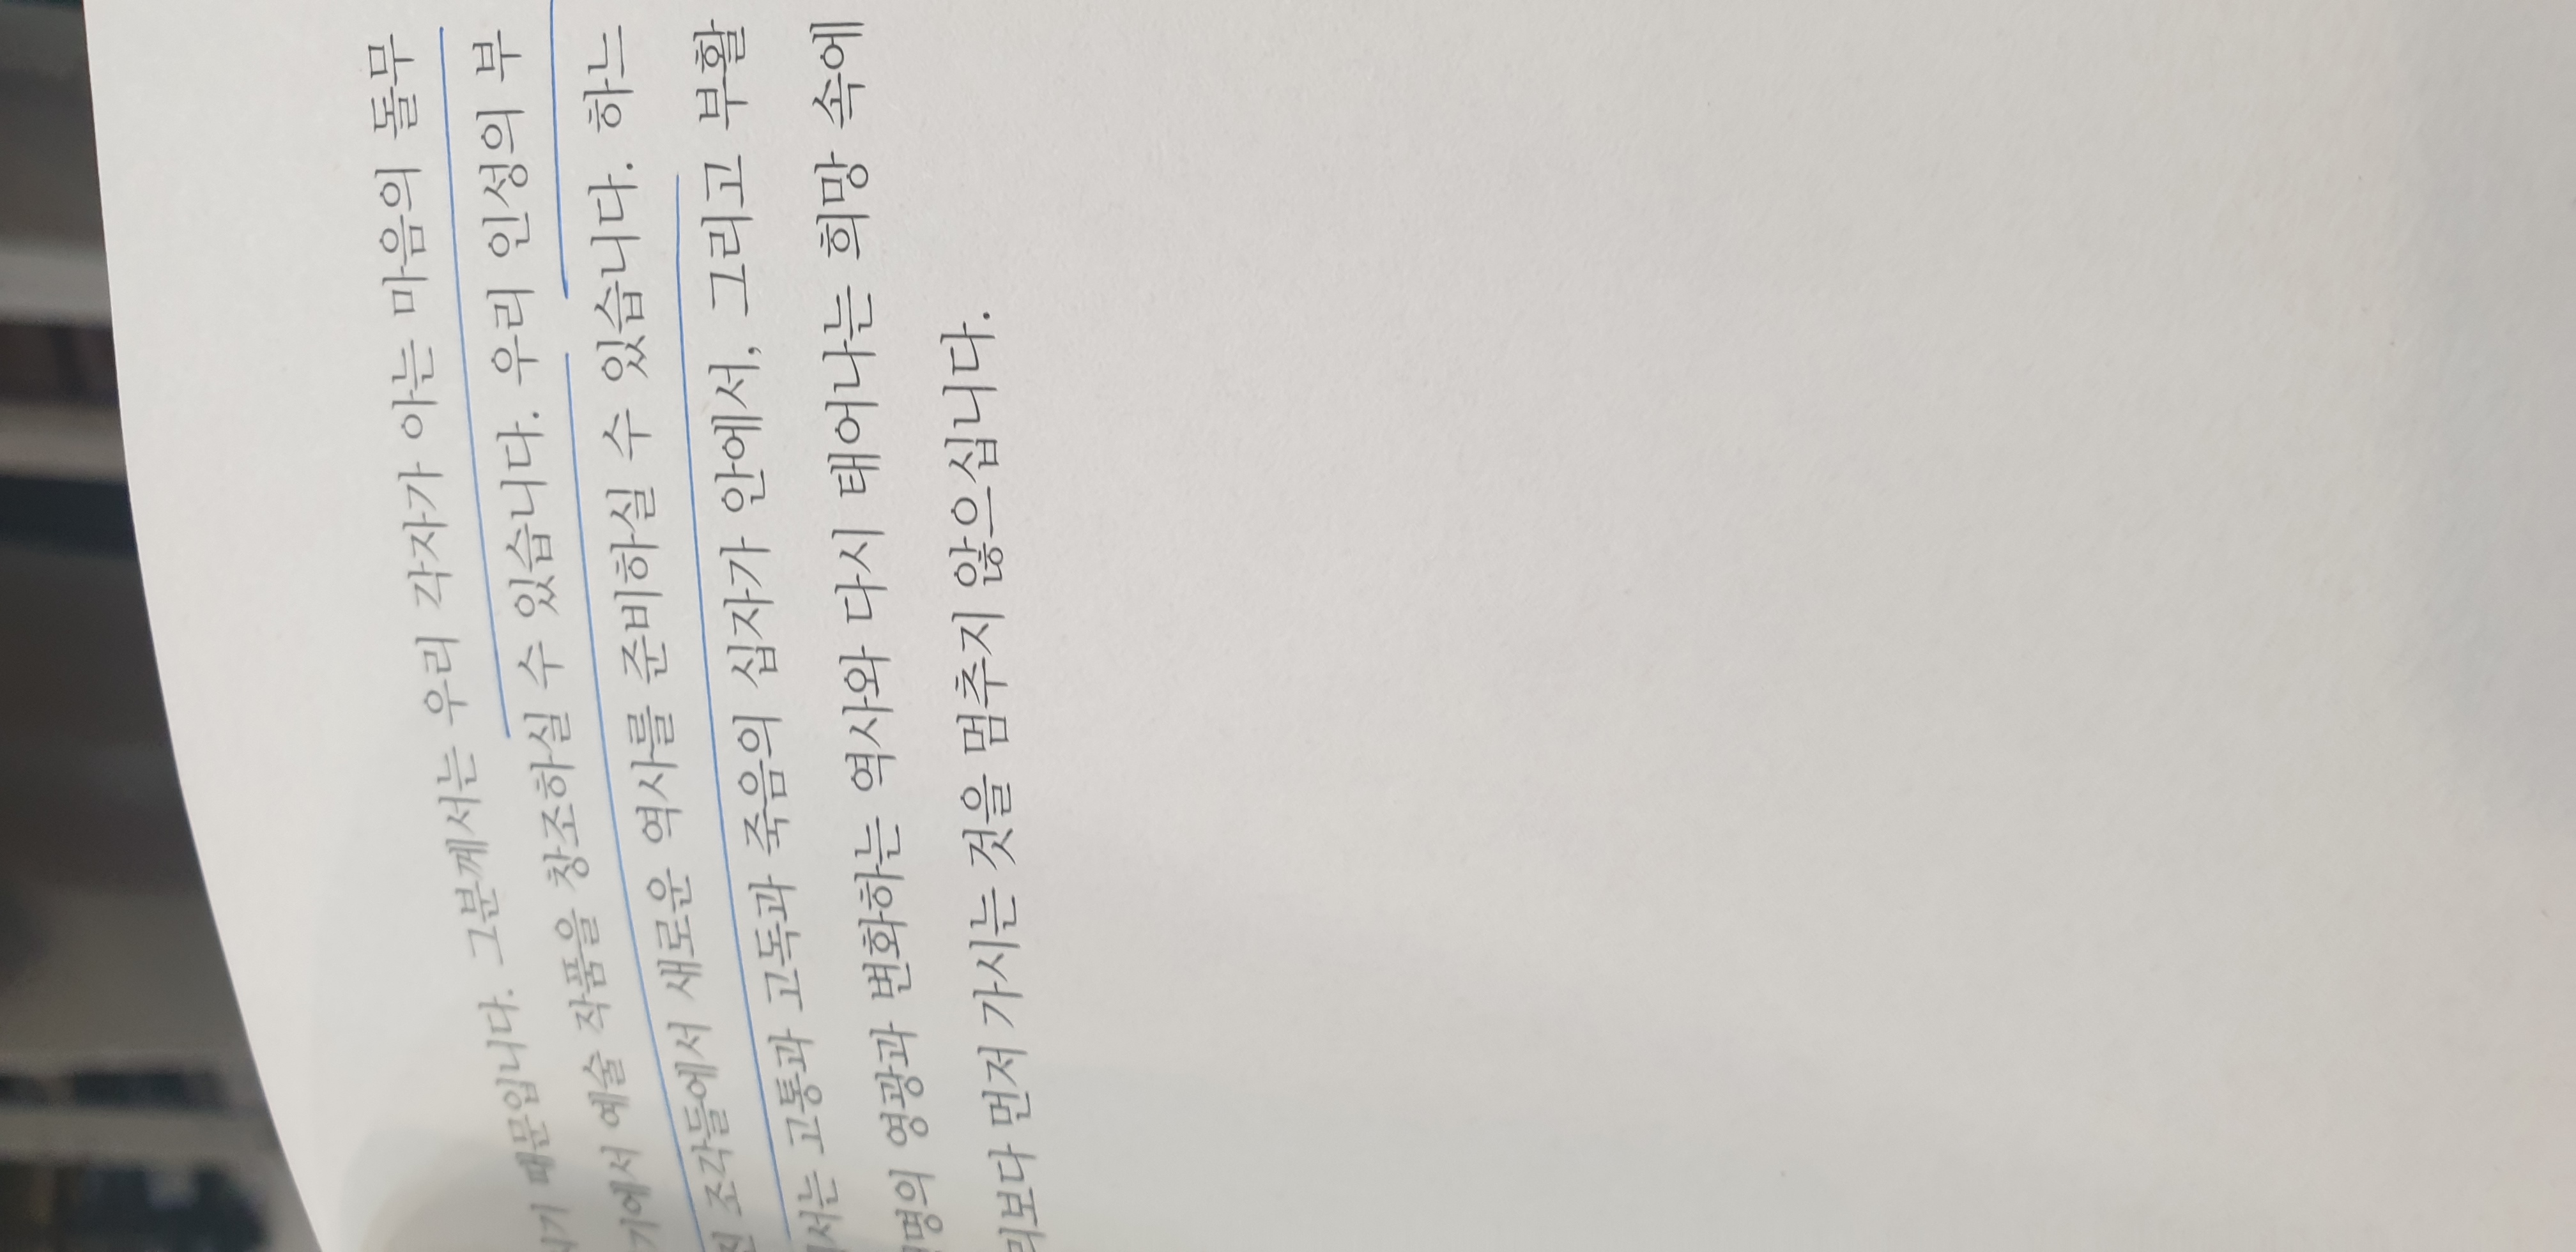 때문입니다. 그분께서는 우리 각자가 아는 마음의 돌무
예술 작품을 창조하실 수 있습니다. 우리 인성의 부
조각들에서 새로운 역사를 준비하실 수 있습니다. 하느
고통과 고독과 죽음의 십자가 안에서, 그리고 부활
영광과 변화하는 역사와 다시 태어나는 희망 속에
먼저 가시는 것을 멈추지 않으십니다.